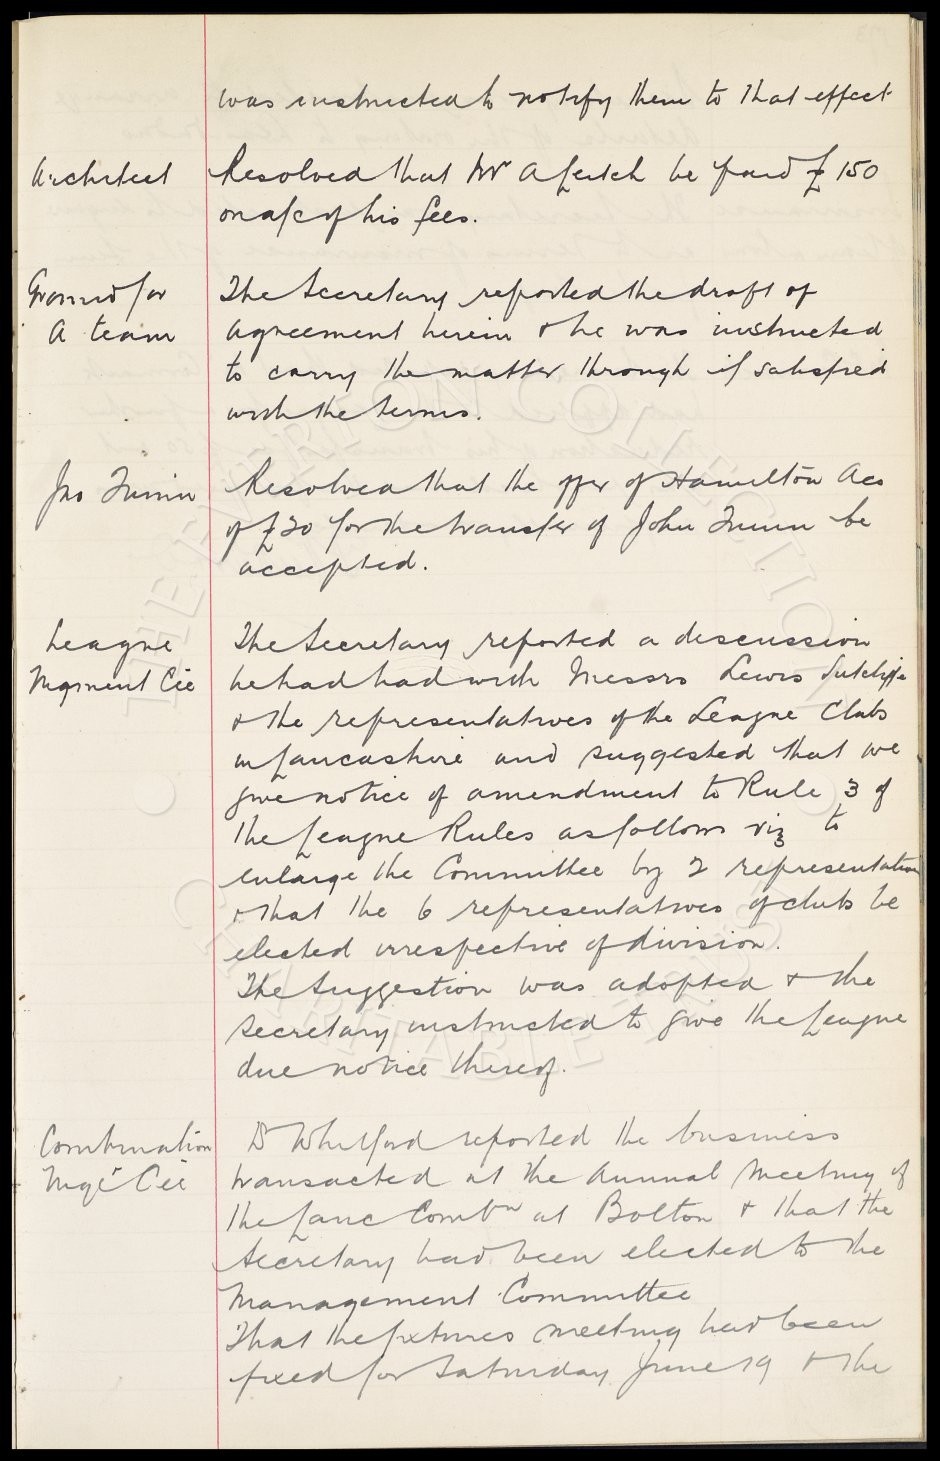 was instructed to notify them to that effect
Architect
Resolved that Mr A Leitch be paid £150
on a/c of his fees.
Ground for
A team
The Secretary reported the draft of
agreement herein & he was instructed
to carry the matter through if satisfied
with the terms.
Jno
Resolved that the offer of Hamilton Acs
of £20 for the transfer of John be
accepted.
League
Mgment Cee
The Secretary reported a discussion
he had had with Messrs Lewis Sutcliffe
& the representatives of the League Clubs
in Lancashire and suggested that we
give notice of amendment to Rule 3 of
the League Rules as follows viz to
enlarge the Committee by 2 representation
& that the 6 representatives of clubs be
elected irrespective of division.
The Suggestion was adopted & the
Secretary instructed to give the League
due notice thereof.
Combination
Mgt Cee
Dr Whitford reported the business
transacted at the Annual Meeting of
the Lanc Combn at Bolton & that the
Secretary had been elected to the
Management Committee
That the fixtures meeting had been
fixed for Saturday June 19 & the
THE EVERTON COLLECTION
CHARITABLE TRUST